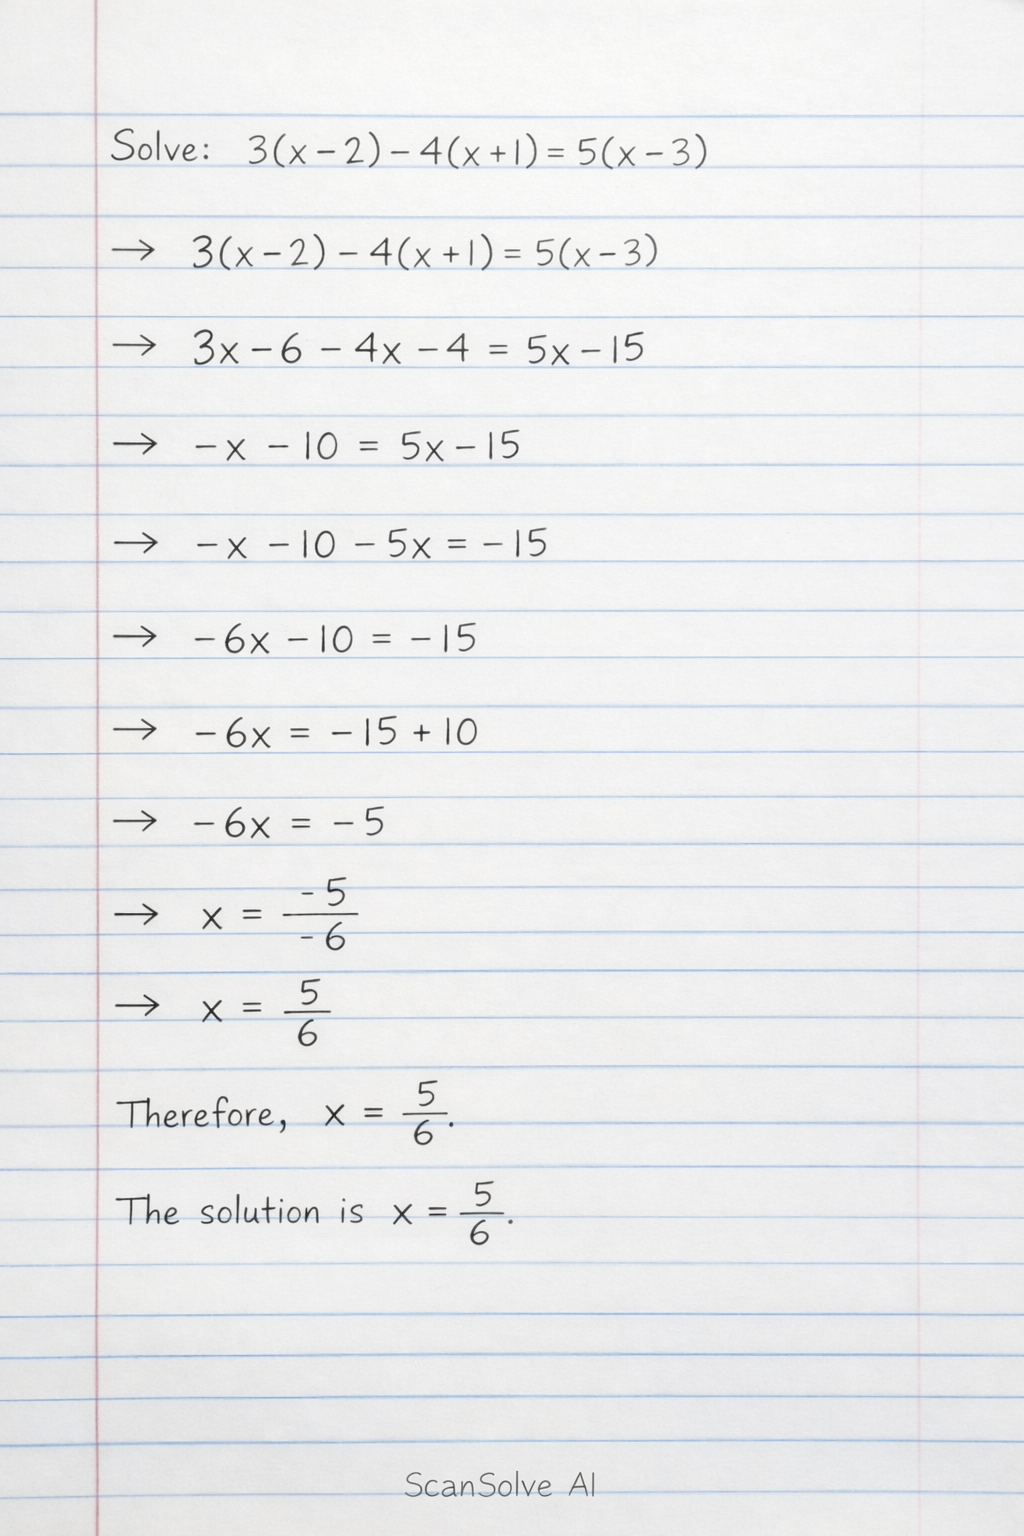 Solve: 3(x-2)-4(x+1)=5(x-3)
→ 3(x-2)-4(x+1)=5(x-3)
→ 3x-6-4x-4=5x-15
→ -x-10=5x-15
→ -x-10-5x=-15
→ -6x-10=-15
→ -6x=-15+10
→ -6x=-5
→ x=-5/-6
→ x=5/6
Therefore, x=5/6.
The solution is x=5/6.
ScanSolve AI